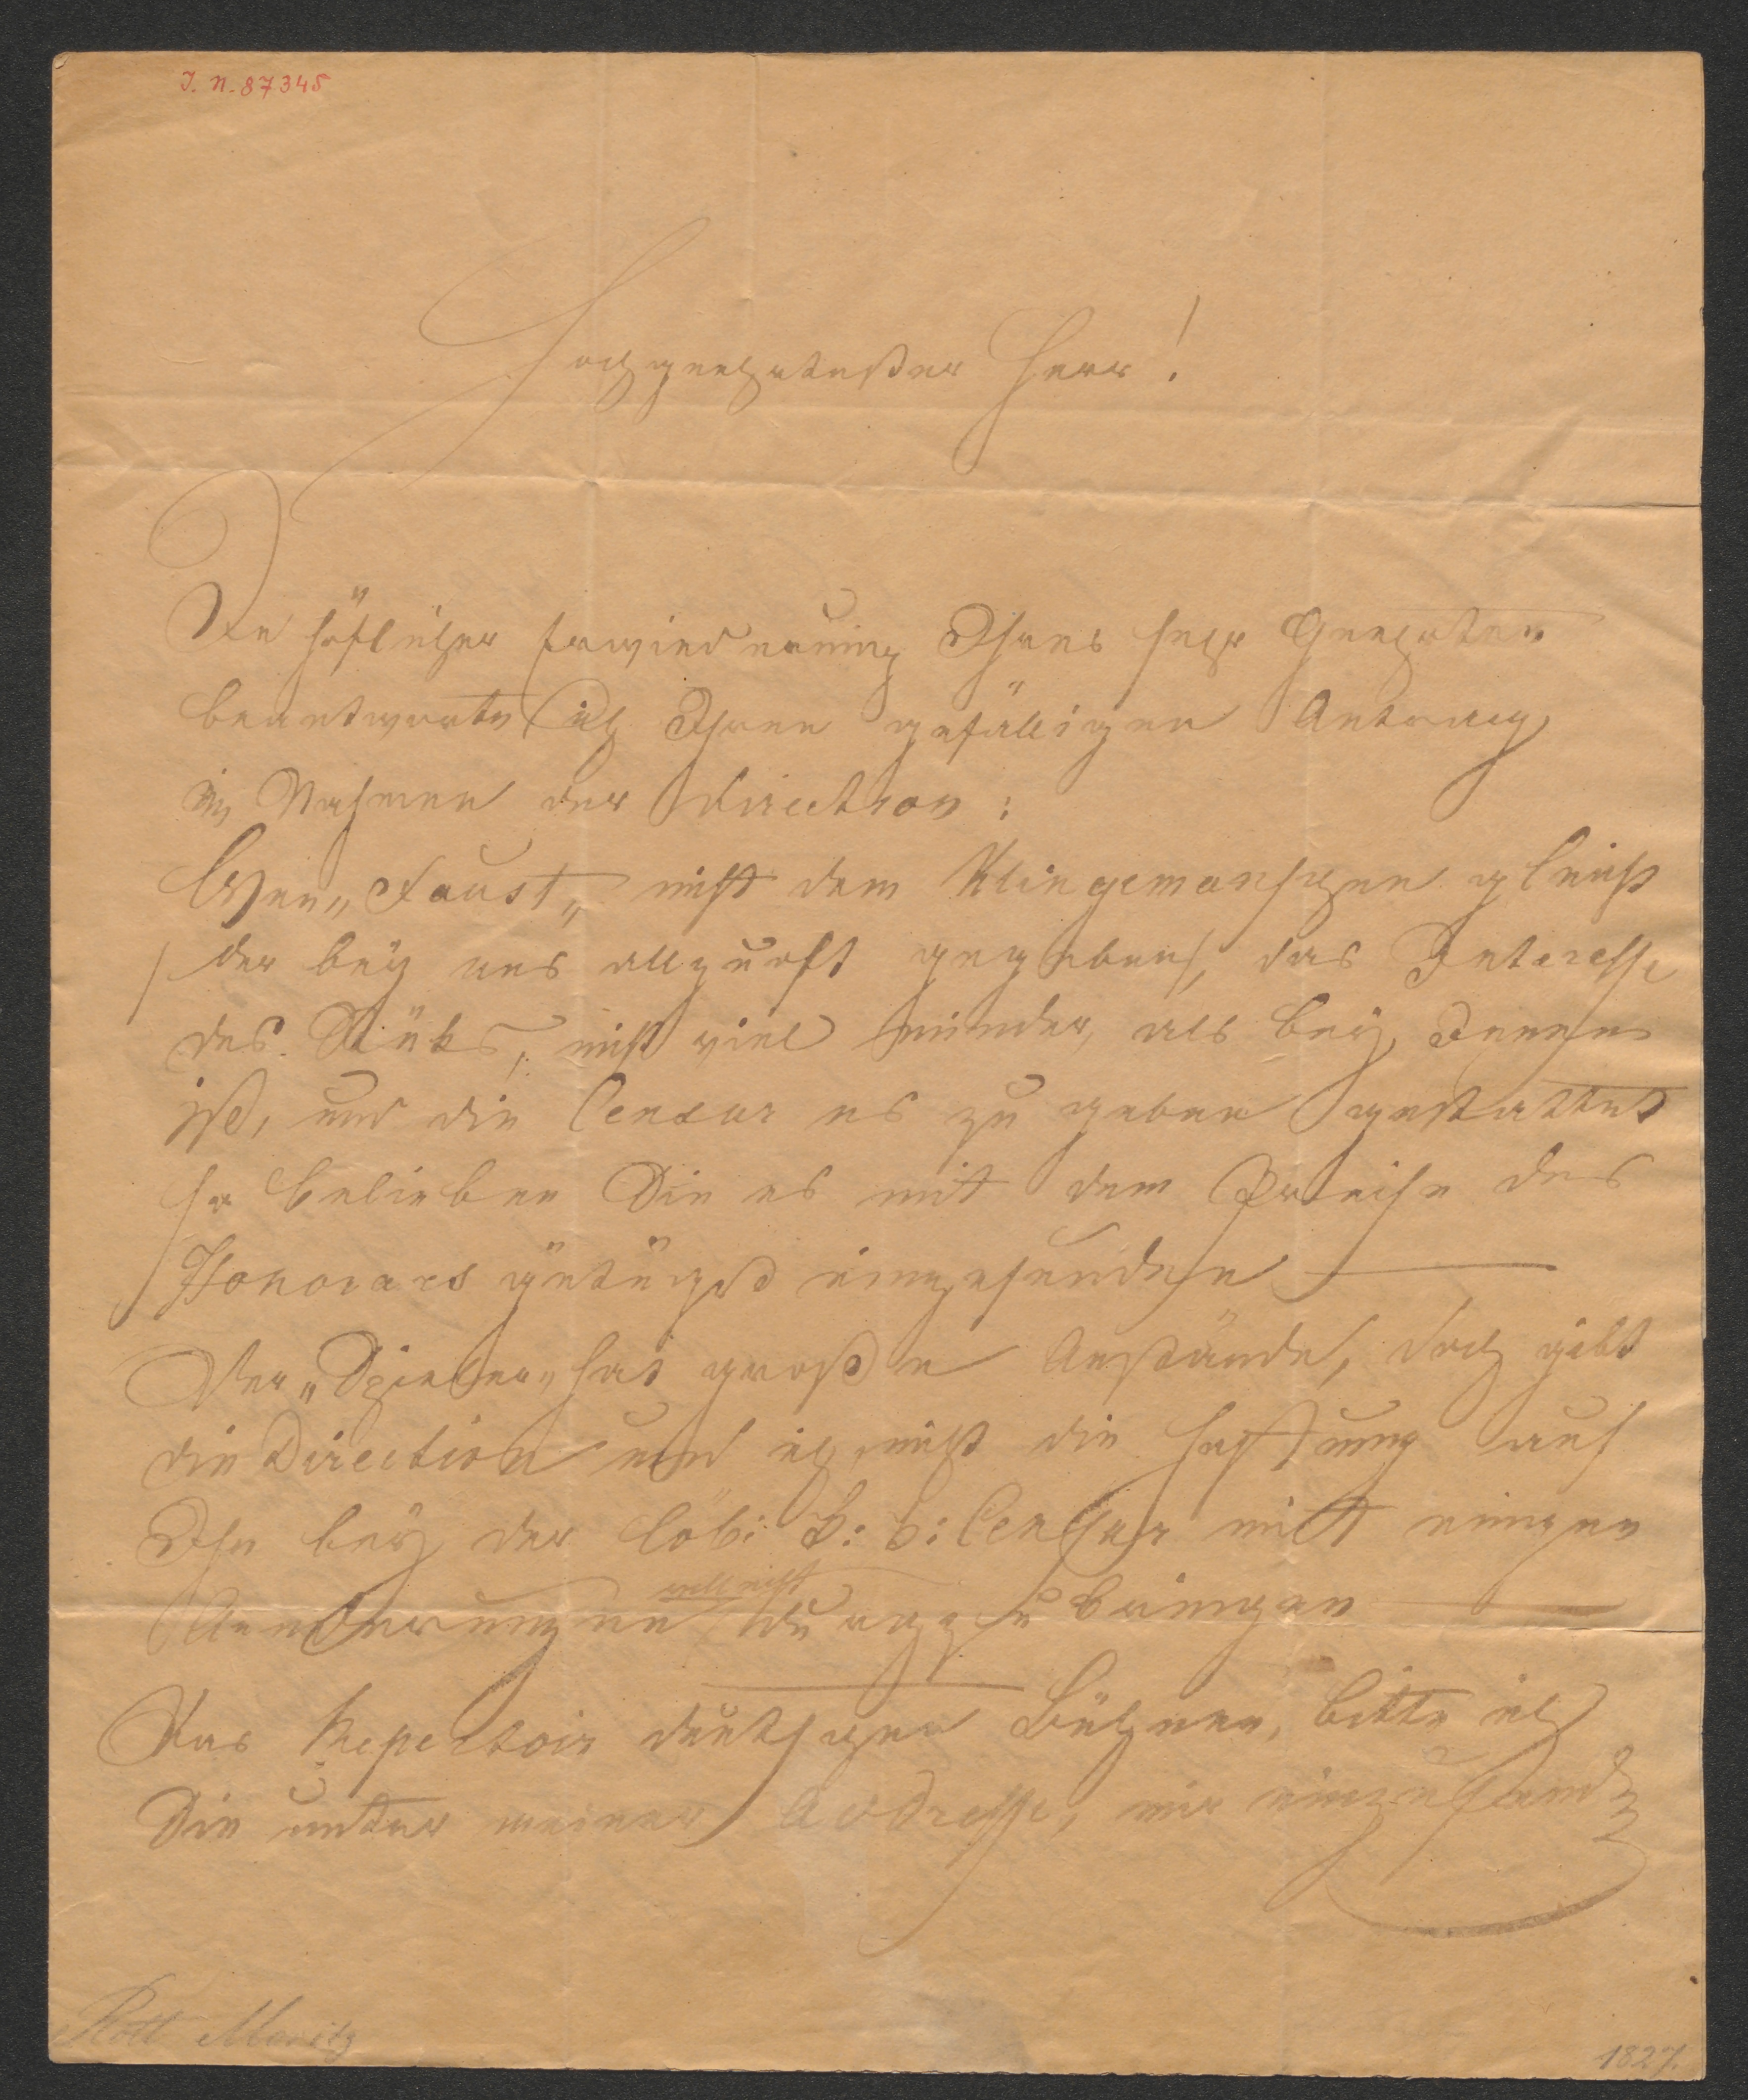 I. N. 87345
Hochgeehrtester Herr!
In höflicher Erwiederung Ihres sehr Geehrten
beantworte ich Ihren gefälligen Antrag
im Nahmen der Direction:
Wenn „Faust„ nicht dem Klingemanschen gleicht
/der bey uns allzuoft gegeben/, das Interesse
des Stüks, nicht viel minder, als bey Jenem
ist, und die Censur es zu geben gestattet
so belieben Sie es mit dem Preise des
Honorars gütigst einzusenden
Der „Spieler„ hat große Anstände, doch gibt
die Direction und ich nicht die Hoffnung auf
Ihn bey der löbl: k: k: Censur mitt einigen
Aenderungen vielleicht durchzubringen
Das Repertoir deutscher Bühnen, bitte ich
Sie unter meiner Addresse, mir einzusenden
Rott Moritz
1827.